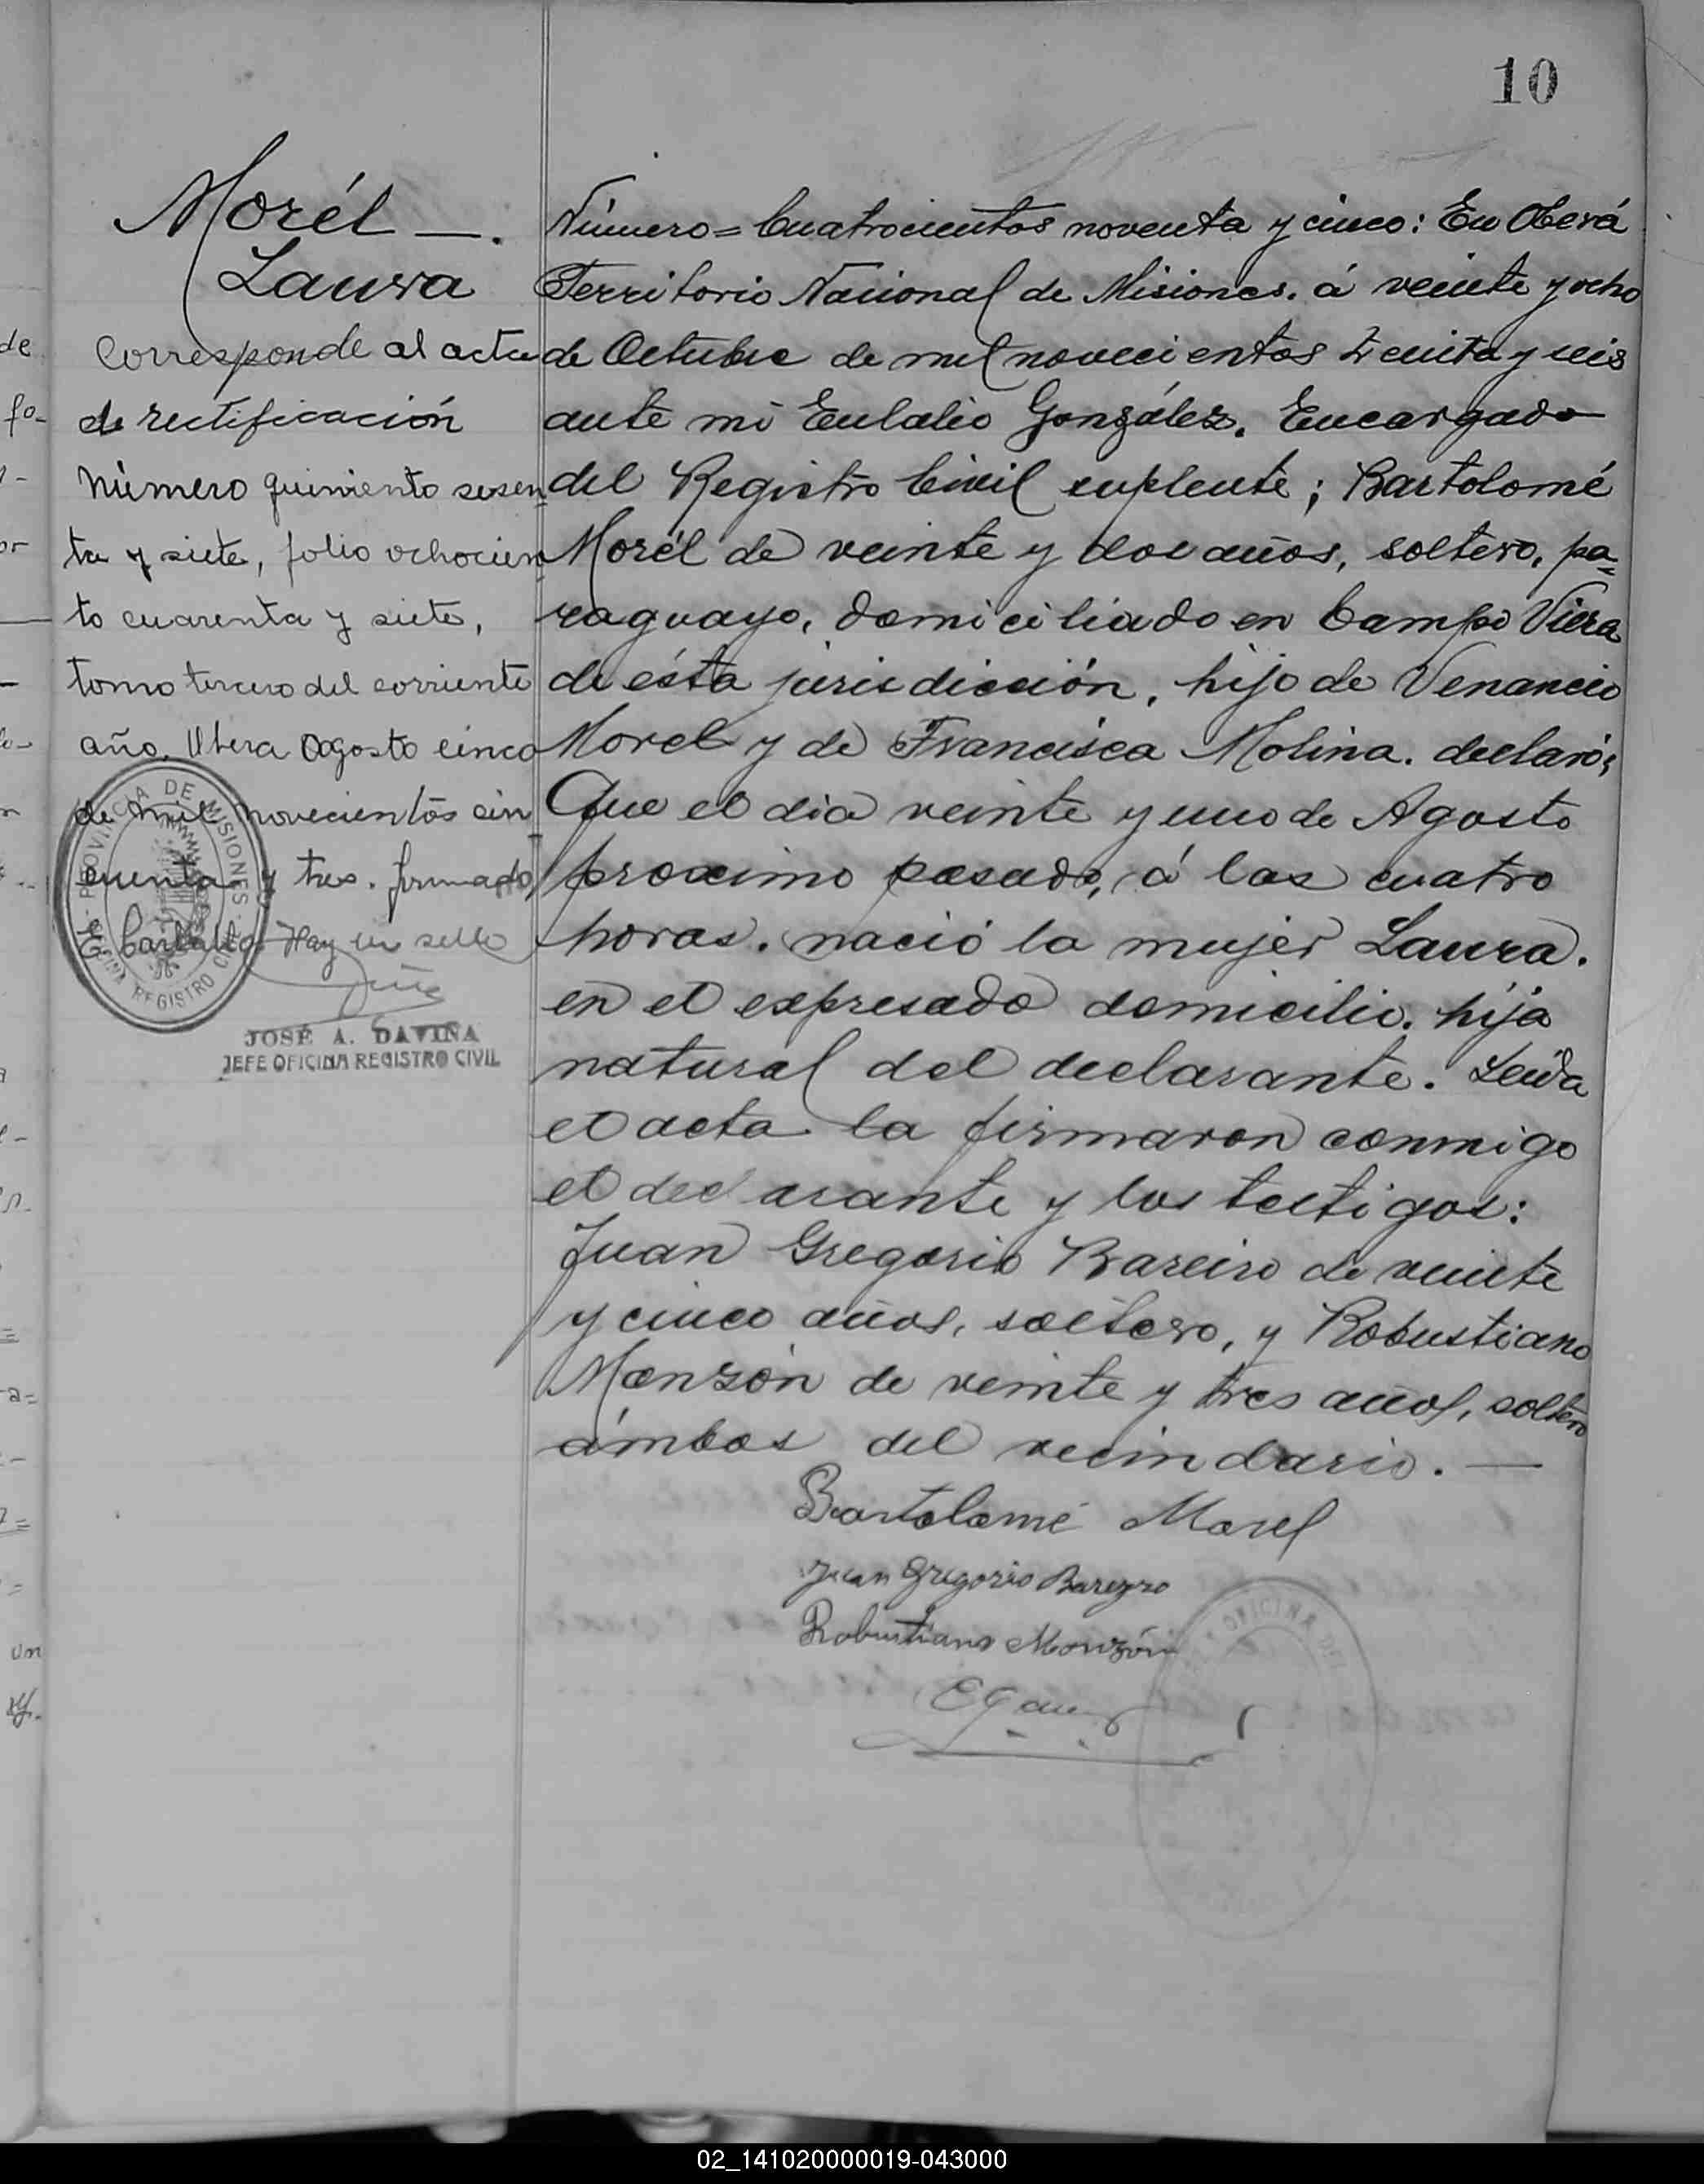 10
Morél —.
Laura
Corresponde al acta
de rectificación
Número quiniento sesen
ta y siete, folio ochocien
to cuarenta y siete,
tomo tercero del corriente
año. Obera Agosto cinco
de mil novecientos cin
cuenta y tres. firmado
Hay un sello
PROVINCIA DE MISIONES
OFICINA REGISTRO CIVIL
JOSÉ A. DAVIÑA
JEFE OFICINA REGISTRO CIVIL
Número = Cuatrocientos noventa y cinco: En Oberá
Territorio Nacional de Misiones. á veinte y ocho
de Octubre de mil novecientos treinta y seis
ante mi Eulalio González. Encargado
del Registro Civil suplente; Bartolomé
Morél de veinte y dos años, soltero, pa=
raguayo, domiciliado en Campo Viera
de ésta jurisdicción, hijo de Venancio
Morel y de Francisca Molina. declaró:
Que el dia veinte y uno de Agosto
proximo pasado, á las cuatro
horas. nació la mujer Laura.
en el expresado domicilio. hija
natural del declarante. Leída
el acta la firmaron conmigo
el declarante y los testigos:
Juan Gregorio Bareiro de veinte
y cinco años, soltero, y Robustiano
Monzón de veinte y tres años, soltero
ámbos del vecindario. —
Bartolomé Morel
Juan Gregorio Bareyro
Robustiano Monzón
OFICINA
02_141020000019-043000